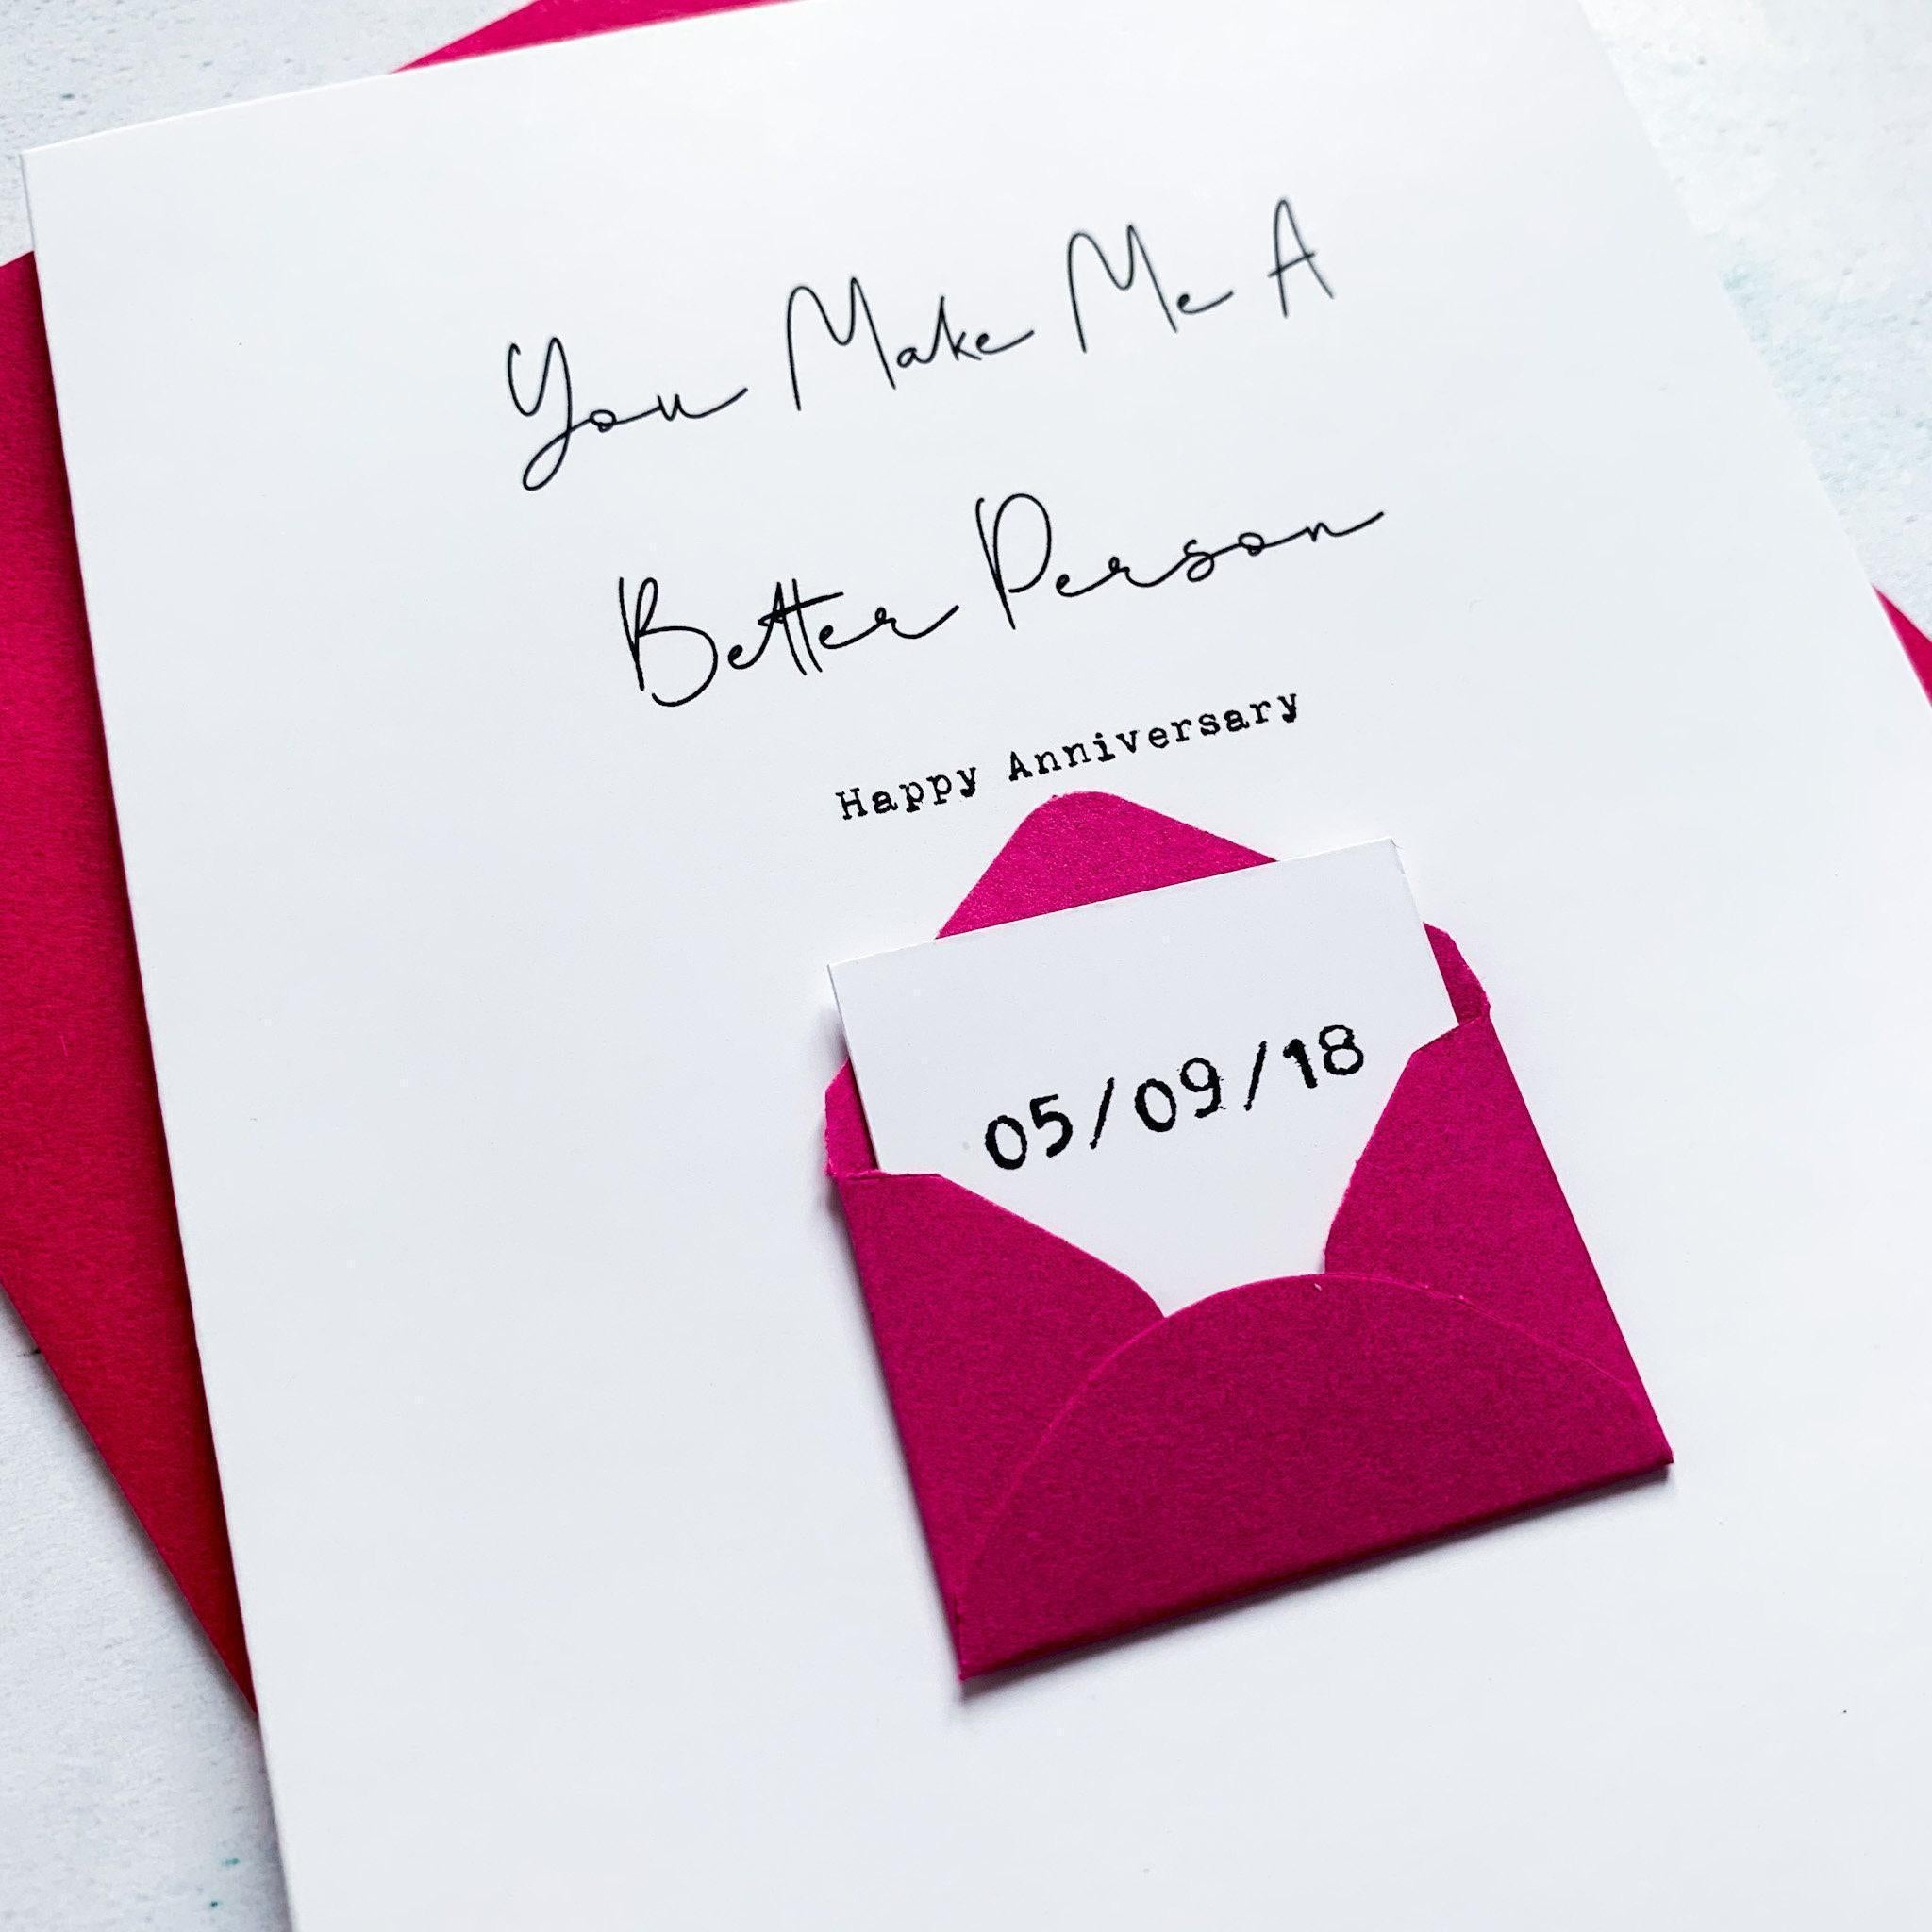 You Make Me A
Better Person
Happy Anniversary
05/09/18